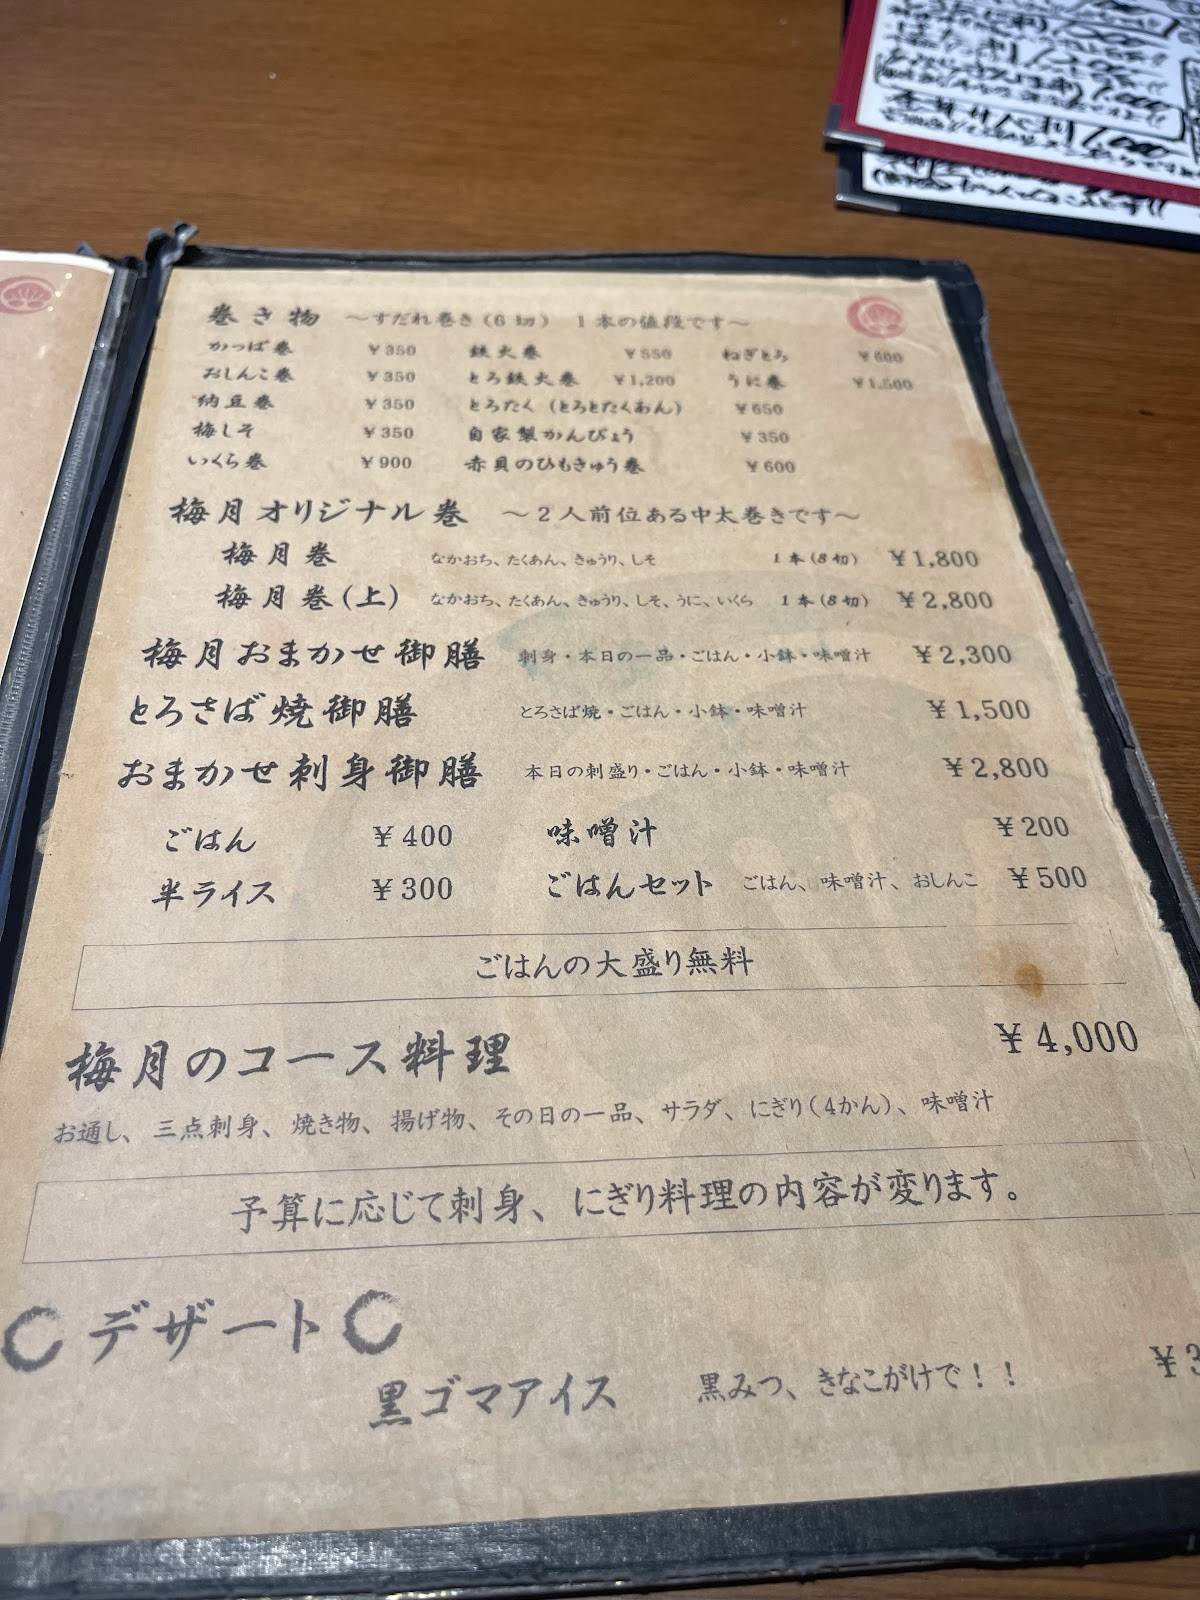 巻き物 ～すだれ巻き(6切) 1本の値段です～
かっぱ巻 ￥350 鉄火巻 ￥550 ねぎとろ ￥600
おしんこ巻 ￥350 とろ鉄火巻 ￥1,200 うに巻 ￥1,500
納豆巻 ￥350 とろたく(とろとたくあん) ￥650
梅しそ ￥350 自家製かんぴょう ￥350
いくら巻 ￥900 赤貝のひもきゅう巻 ￥600
梅月オリジナル巻 ～2人前位ある中太巻きです～
梅月巻 なかおち、たくあん、きゅうり、しそ 1本(8切) ￥1,800
梅月巻(上) なかおち、たくあん、きゅうり、しそ、うに、いくら 1本(8切) ￥2,800
梅月おまかせ御膳 刺身・本日の一品・ごはん・小鉢・味噌汁 ￥2,300
とろさば焼御膳 とろさば焼・ごはん・小鉢・味噌汁 ￥1,500
おまかせ刺身御膳 本日の刺盛り・ごはん・小鉢・味噌汁 ￥2,800
ごはん ￥400 味噌汁 ￥200
半ライス ￥300 ごはんセット ごはん、味噌汁、おしんこ ￥500
ごはんの大盛り無料
梅月のコース料理 ￥4,000
お通し、三点刺身、焼き物、揚げ物、その日の一品、サラダ、にぎり(4かん)、味噌汁
予算に応じて刺身、にぎり料理の内容が変ります。
デザート
黒ゴマアイス 黒みつ、きなこがけで！！ ￥3